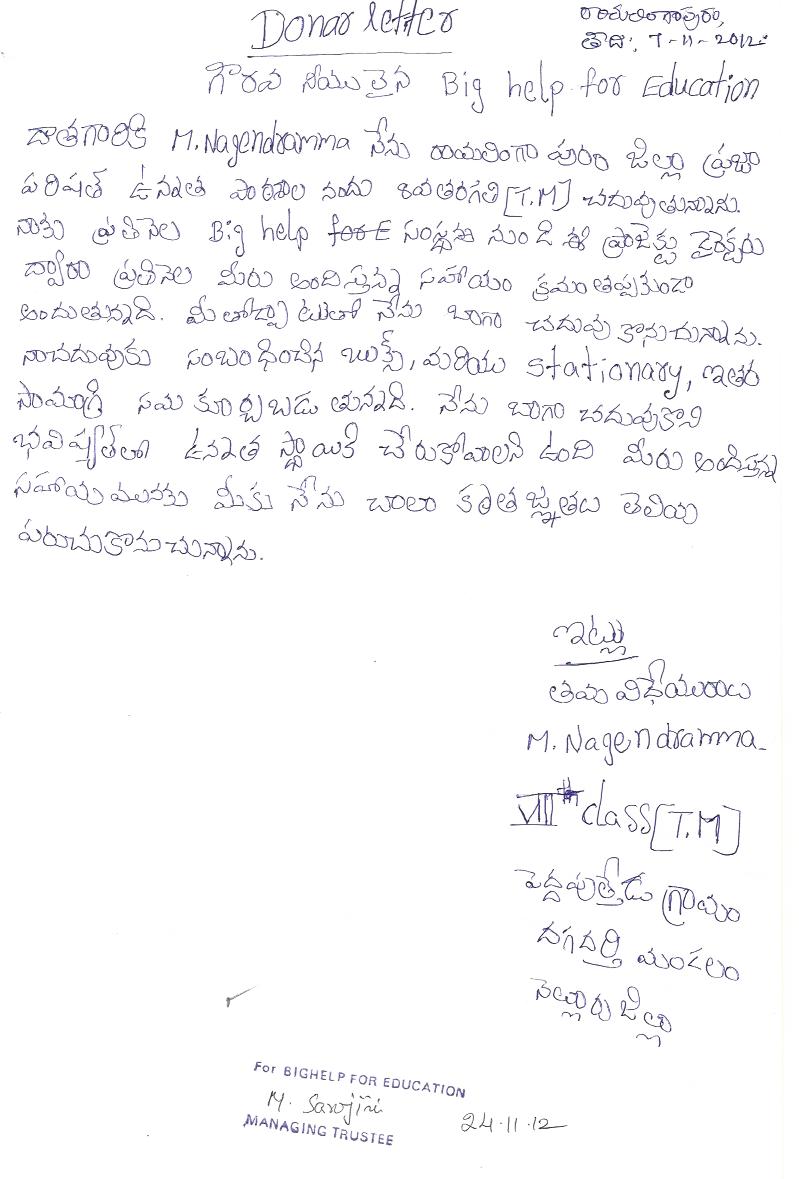 Donar letter
రామలింగాపురం,
తాది:, 7-11-2012.
గౌరవ నీయులైన Big help for Education
దాతగారికి M.Nagendramma నేను రామలింగా పురం జిల్లా ప్రజా
పరిషత్ ఉన్నత పాఠశాల నందు 8వతరగతి [T.M] చదువుతున్నాను.
నాకు ప్రతినెల Big help for E సంస్థ నుండి ఈ ప్రాజెక్టు డైరెక్టరు
ద్వారా ప్రతినెల మీరు అందిస్తున్న సహాయం క్రమంతప్పకుండా
అందుతున్నది. మీతోడ్పాటుతో నేను బాగా చదువు కొనుచున్నాను.
నాచదువుకు సంబంధించిన బుక్స్, మరియు stationary, ఇతర
సామాగ్రి సమ కూర్చబడు తున్నది. నేను బాగా చదువుకొని
భవిష్యత్‌లో ఉన్నత స్థాయికి చేరుకోవాలని ఉంది మీరు అందిస్తున్న
సహాయమునకు మీకు నేను చాలా కృతజ్ఞతలు తెలియ
పరుచుకొనుచున్నాను.
ఇట్లు
తమ విధేయురాలు
M. Nagendramma
VIIIth class [T.M]
పెద్దపుత్తేడు గ్రామం
దగదర్తి మండలం
నెల్లూరు జిల్లా
For BIGHELP FOR EDUCATION
M. Sarojini
MANAGING TRUSTEE
24.11.12